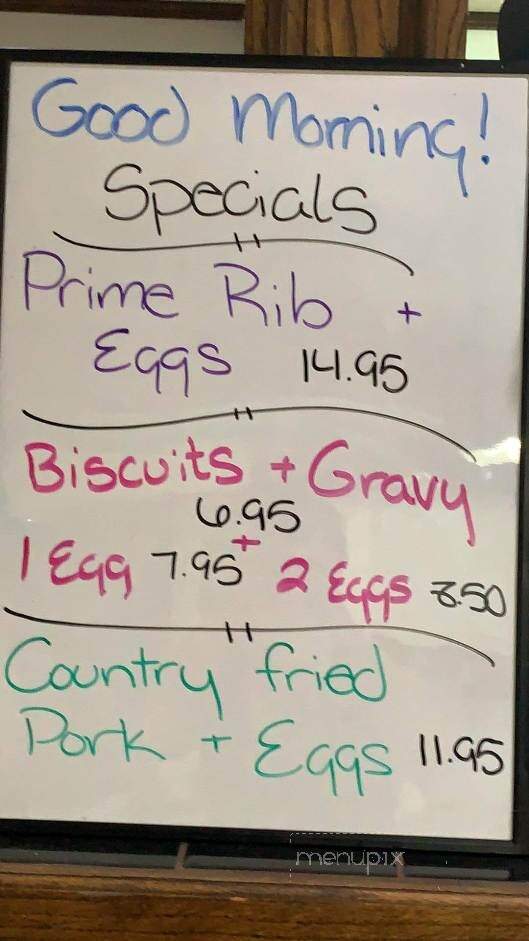 Good Morning!
Specials
Prime Rib +
Eggs 14.95
Biscuits + Gravy
6.95
+
1 Egg 7.95 2 Eggs 8.50
Country fried
Pork + Eggs 11.95
menupix